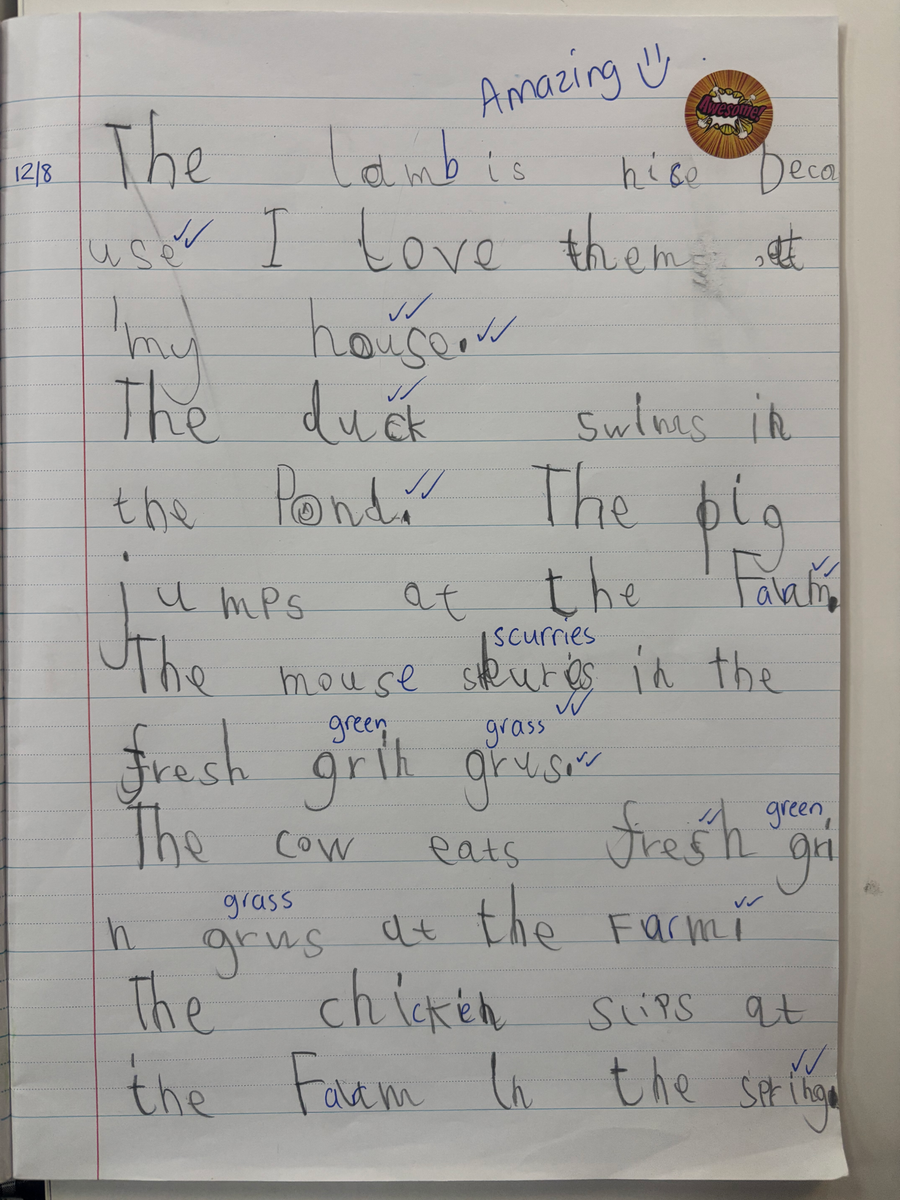 Amazing
Awesome!
12/8
The lamb is nice Beca
use I Love them at
my house.
The duck swims in
the Pond. The pig
jumps at the Faram.
scurries
The mouse skuris in the
green grass
fresh grin grus.
green
The cow eats fresh gri
grass
n grus at the Farm
The chicken slips at
the Faram In the spring.